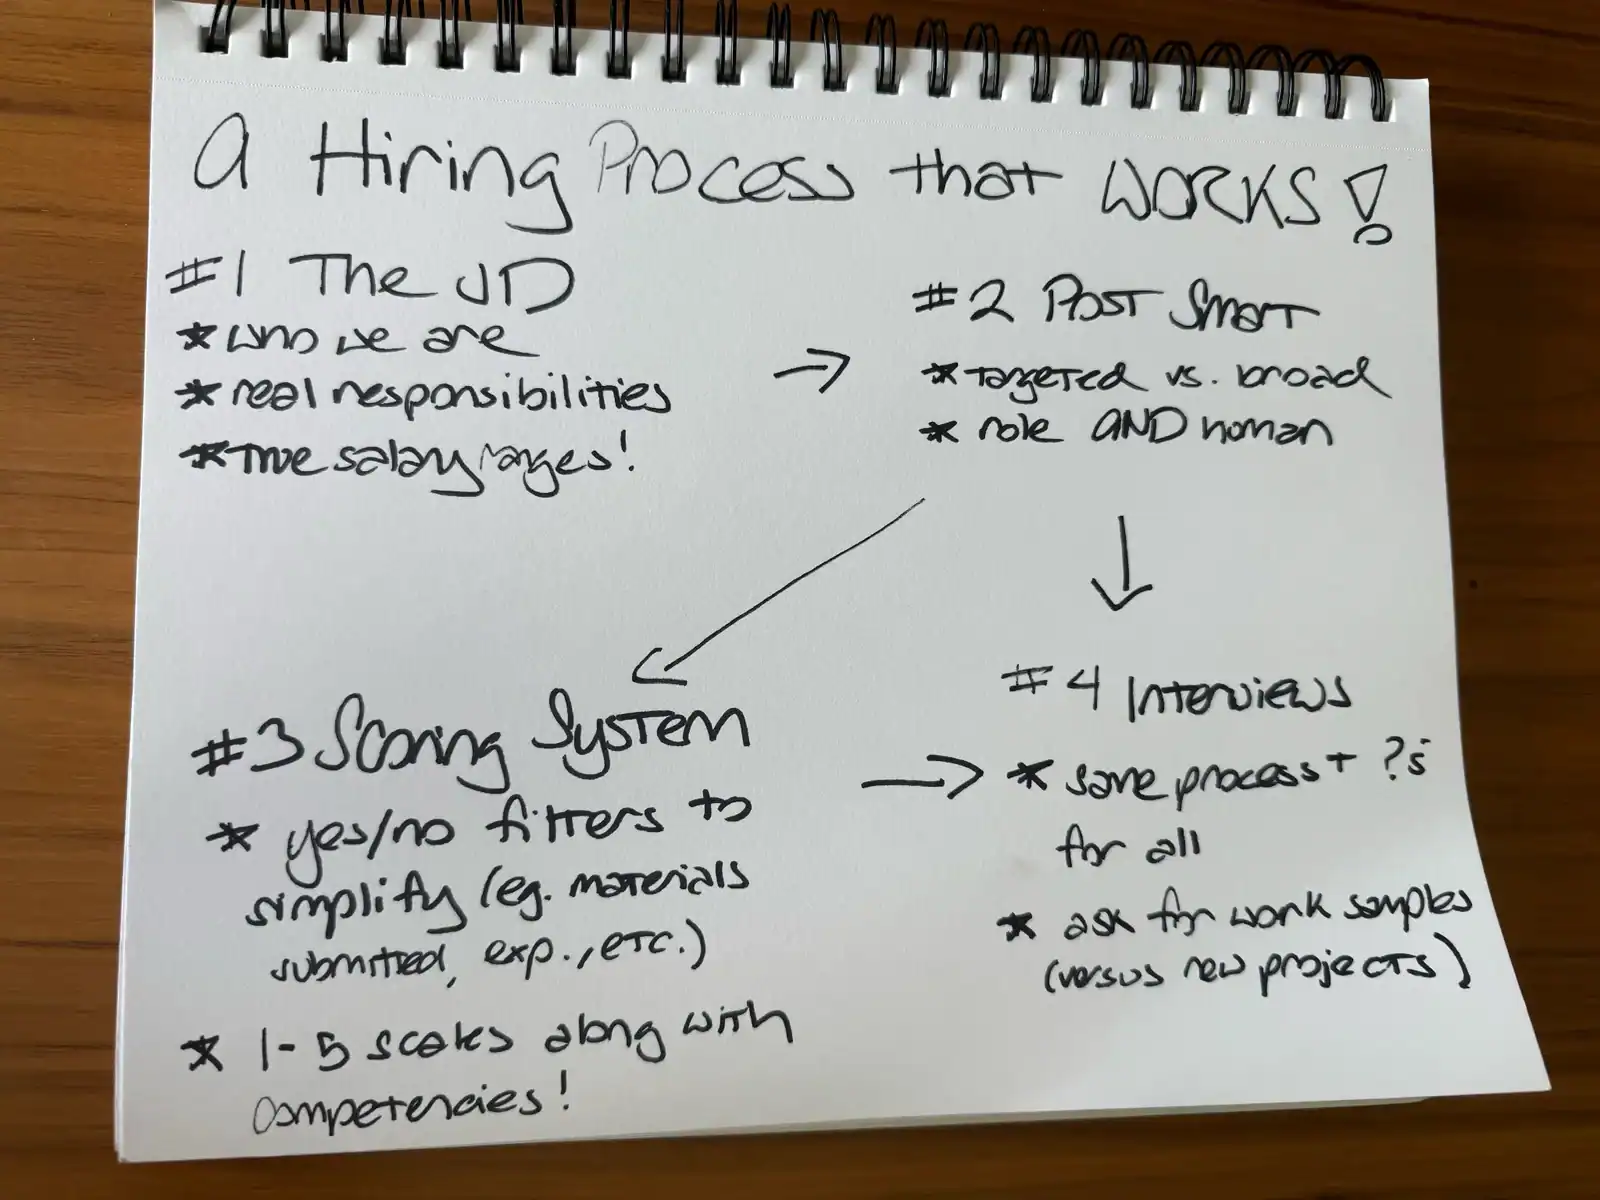 A Hiring Process that WORKS!
#1 The JD
* who we are
* real responsibilities
* true salary ranges!
#2 Post Smart
* targeted vs. broad
* role AND human
#3 Scoring System
* yes/no filters to
simplify (eg. materials
submitted, exp., etc.)
* 1-5 scales along with
competencies!
#4 Interviews
* same process + ?s
for all
* ask for work samples
(versus new projects)